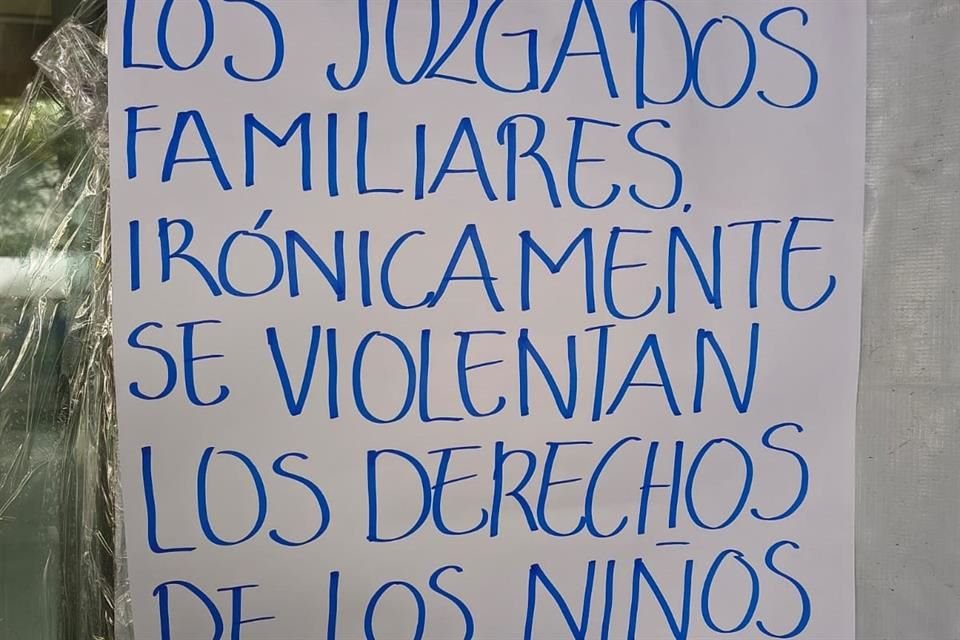 LOS JUZGADOS
FAMILIARES,
IRÓNICAMENTE
SE VIOLENTAN
LOS DERECHOS
DE LOS NIÑOS